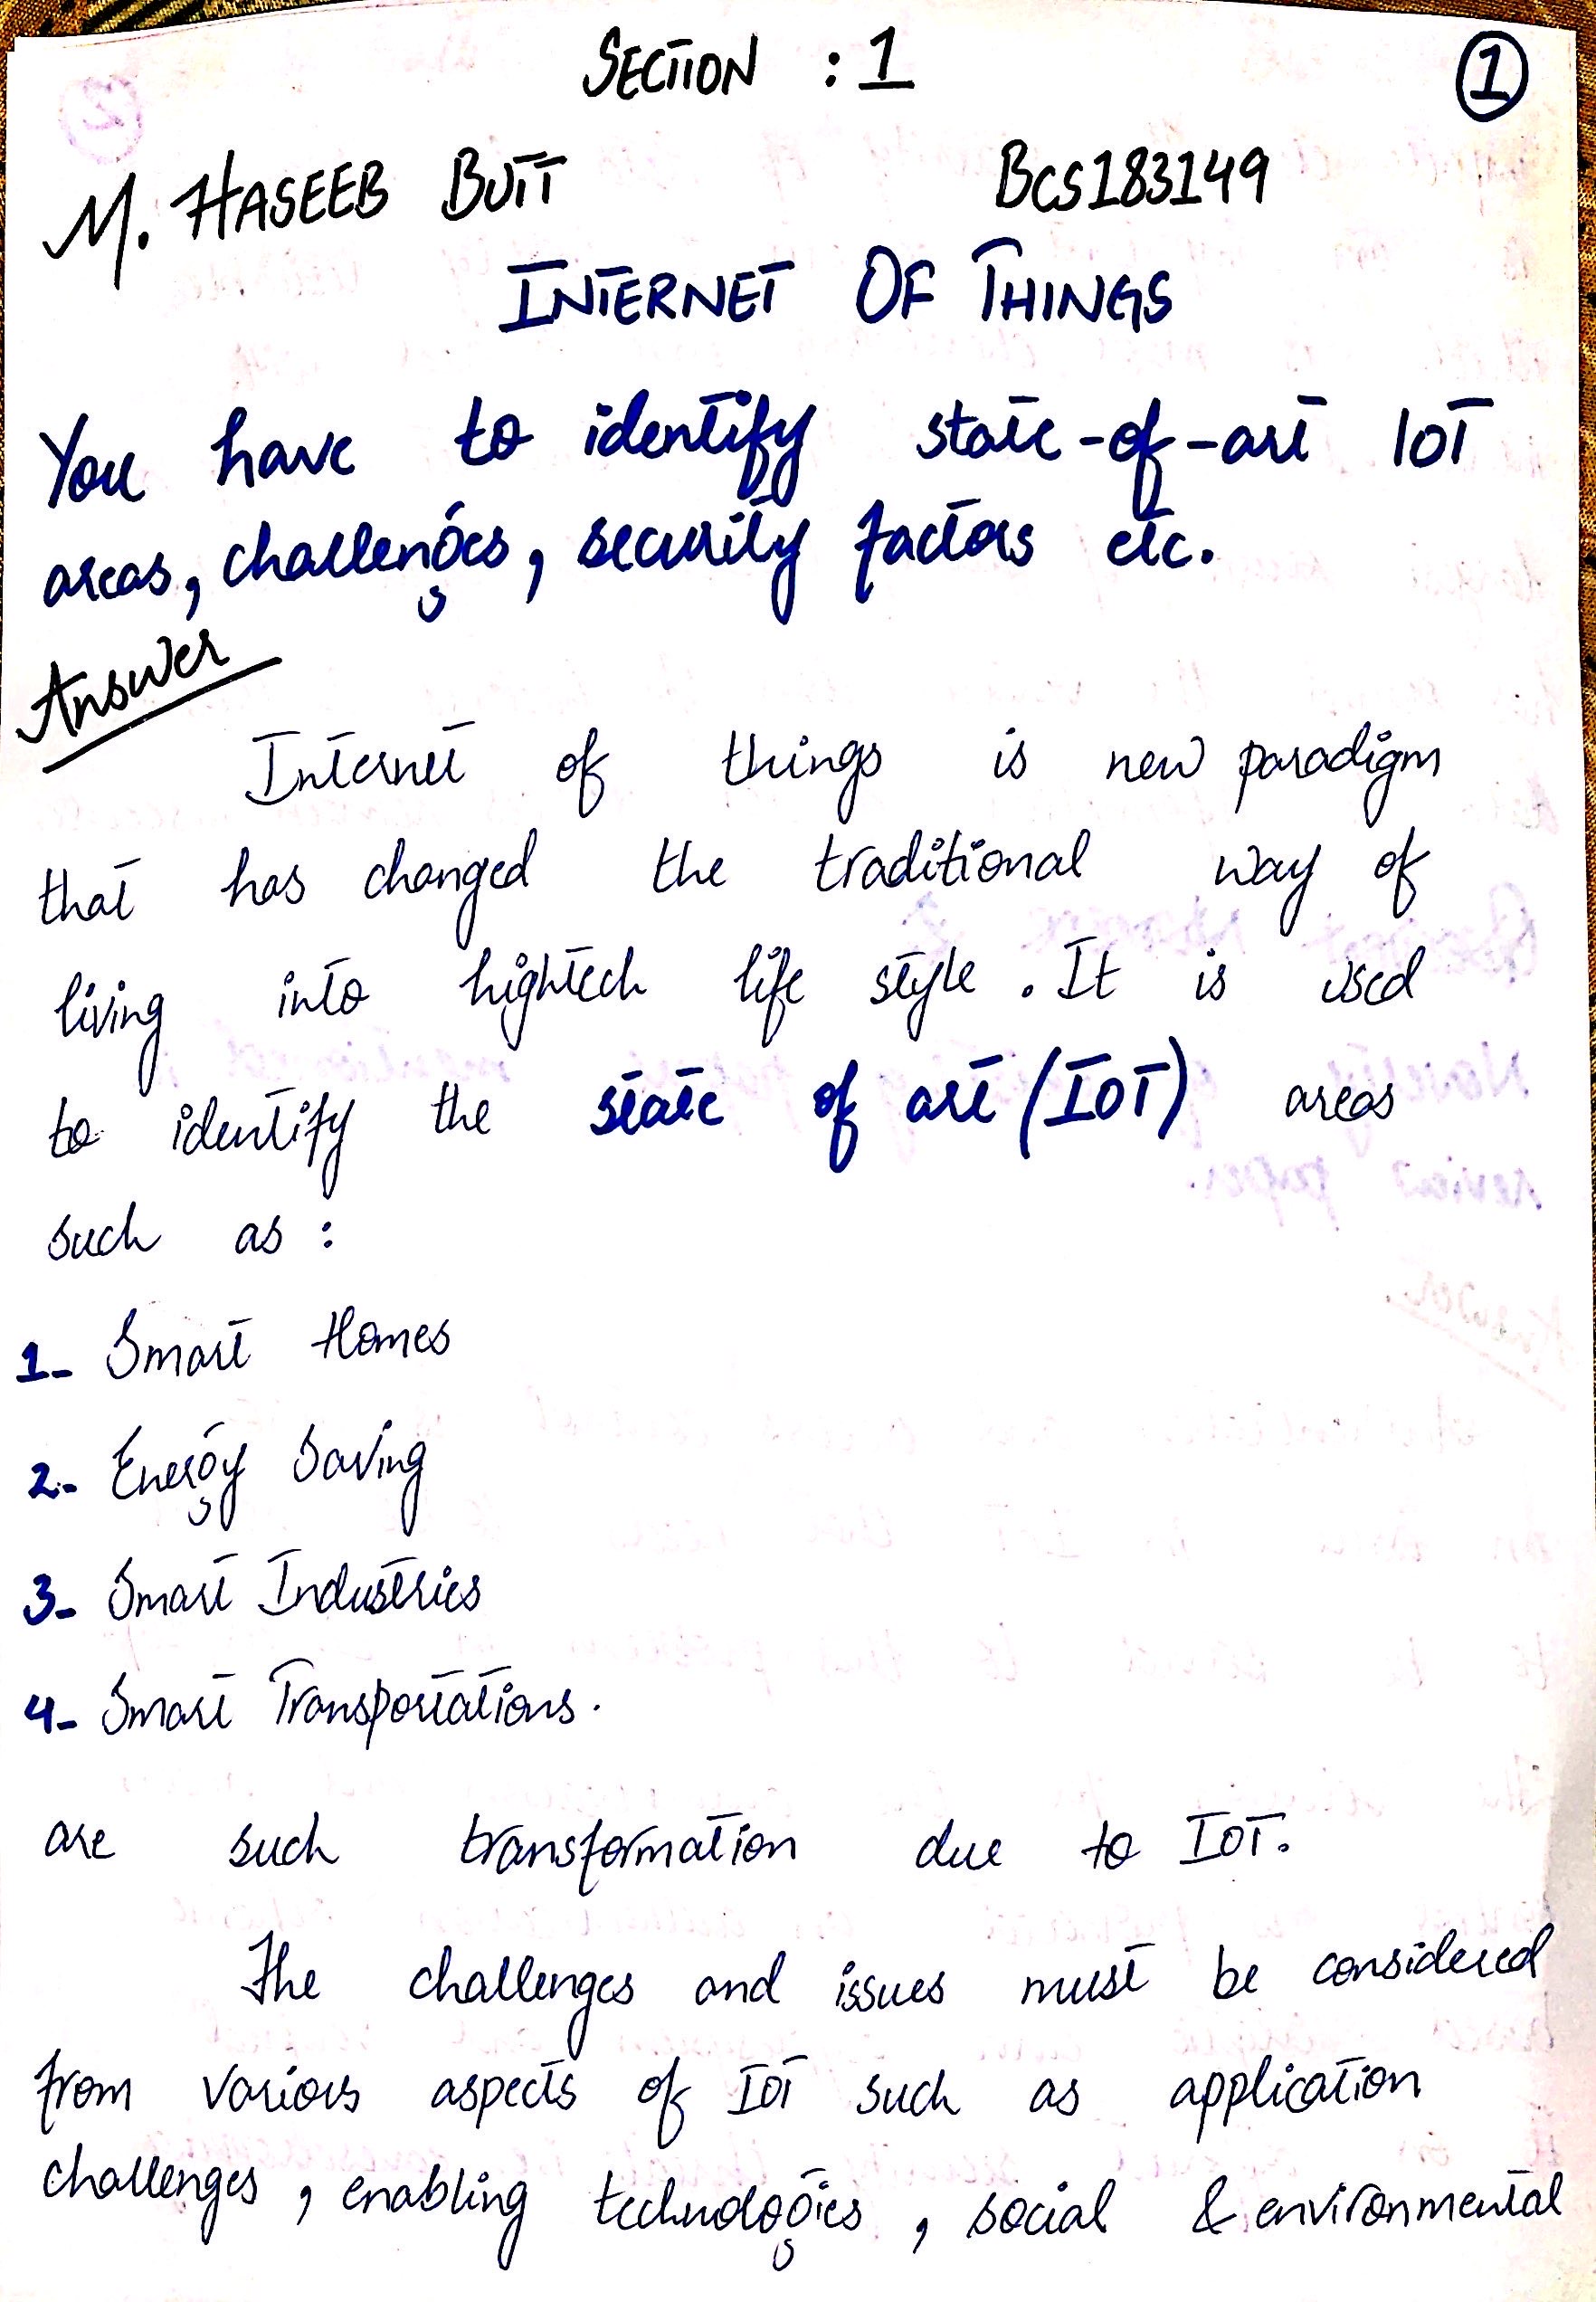 SECTION : 1
1
M. HASEEB BUTT BCS183149
INTERNET OF THINGS
You have to identify state-of-art IOT
areas, challenges, security factors etc.
Answer
Internet of things is new paradigm
that has changed the traditional way of
living into hightech life style. It is used
to identify the state of art (IOT) areas
such as :
1- Smart Homes
2- Energy Saving
3- Smart Industries
4- Smart Transportations.
are such transformation due to IOT.
The challenges and issues must be considered
from various aspects of IOT such as application
challenges, enabling technologies, social & environmental